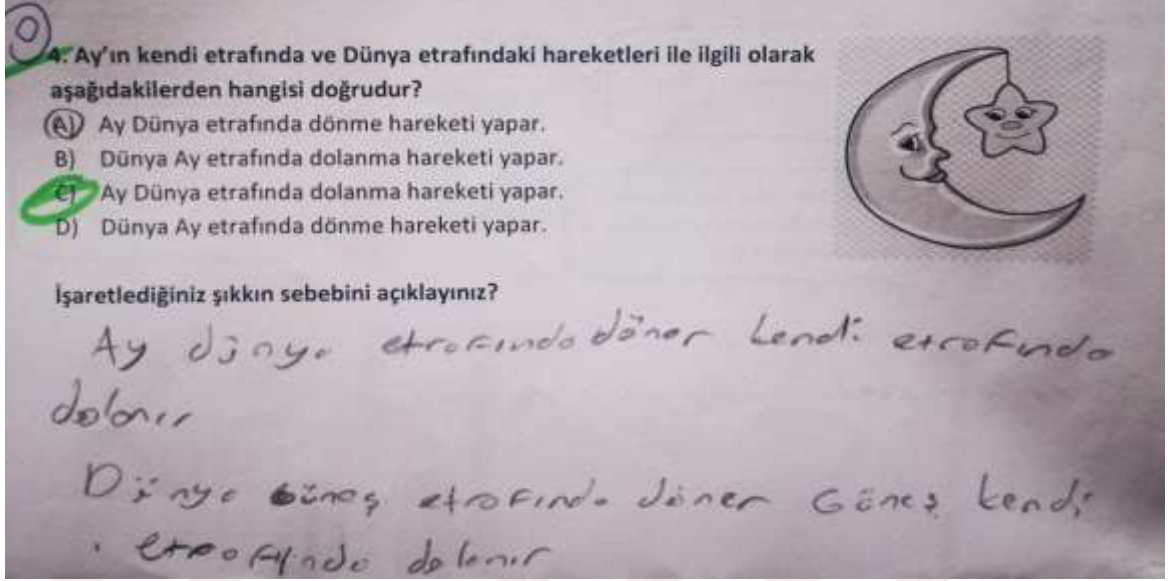 0
4. Ay'ın kendi etrafında ve Dünya etrafındaki hareketleri ile ilgili olarak
aşağıdakilerden hangisi doğrudur?
A) Ay Dünya etrafında dönme hareketi yapar.
B) Dünya Ay etrafında dolanma hareketi yapar.
C) Ay Dünya etrafında dolanma hareketi yapar.
D) Dünya Ay etrafında dönme hareketi yapar.
İşaretlediğiniz şıkkın sebebini açıklayınız?
Ay dünya etrafında döner kendi etrafında
dolanır
Dünya Güneş etrafında döner Güneş kendi
etrafında dolanır